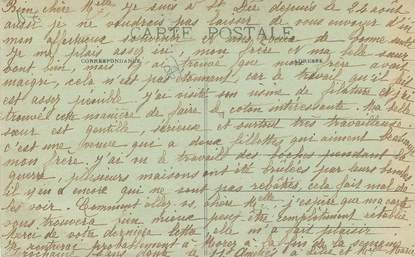 Bien chère Melle je suis à St Dié depuis le 2 août
aussi je ne voudrais pas laisser de vous envoyer d'ici
mon affectueux souvenir et de bonne amitié
CARTE POSTALE
Je me plais assez ici, mon frère et ma belle sœur
CORRESPONDANCE ADRESSE
vont bien, mais j'ai trouvé que mon frère avait
maigri, cela n'est pas étonnant, car le travail qu'il fait
est assez pénible. j'ai visité son usine de filature et j'ai
trouvé cette manière de faire le coton intéressante. Ma belle
sœur est gentille, sérieuse et surtout très travailleuse
c'est une veuve qui a deux fillettes qui aiment beaucoup
mon frère. j'ai vu le travail des boches pendant la
guerre, plusieurs maisons ont été brûlées par leurs bombes
il y en a encore qui ne sont pas rebaties, cela fait mal de
les voir. Comment allez-vs, chère Melle, j'espère que ma carte
vous trouvera un mieux peut être complètement rétablie
merci de votre dernière lettre elle m'a fait plaisir
Je rentrerai probablement à Morez à la fin de la semaine
prochaine